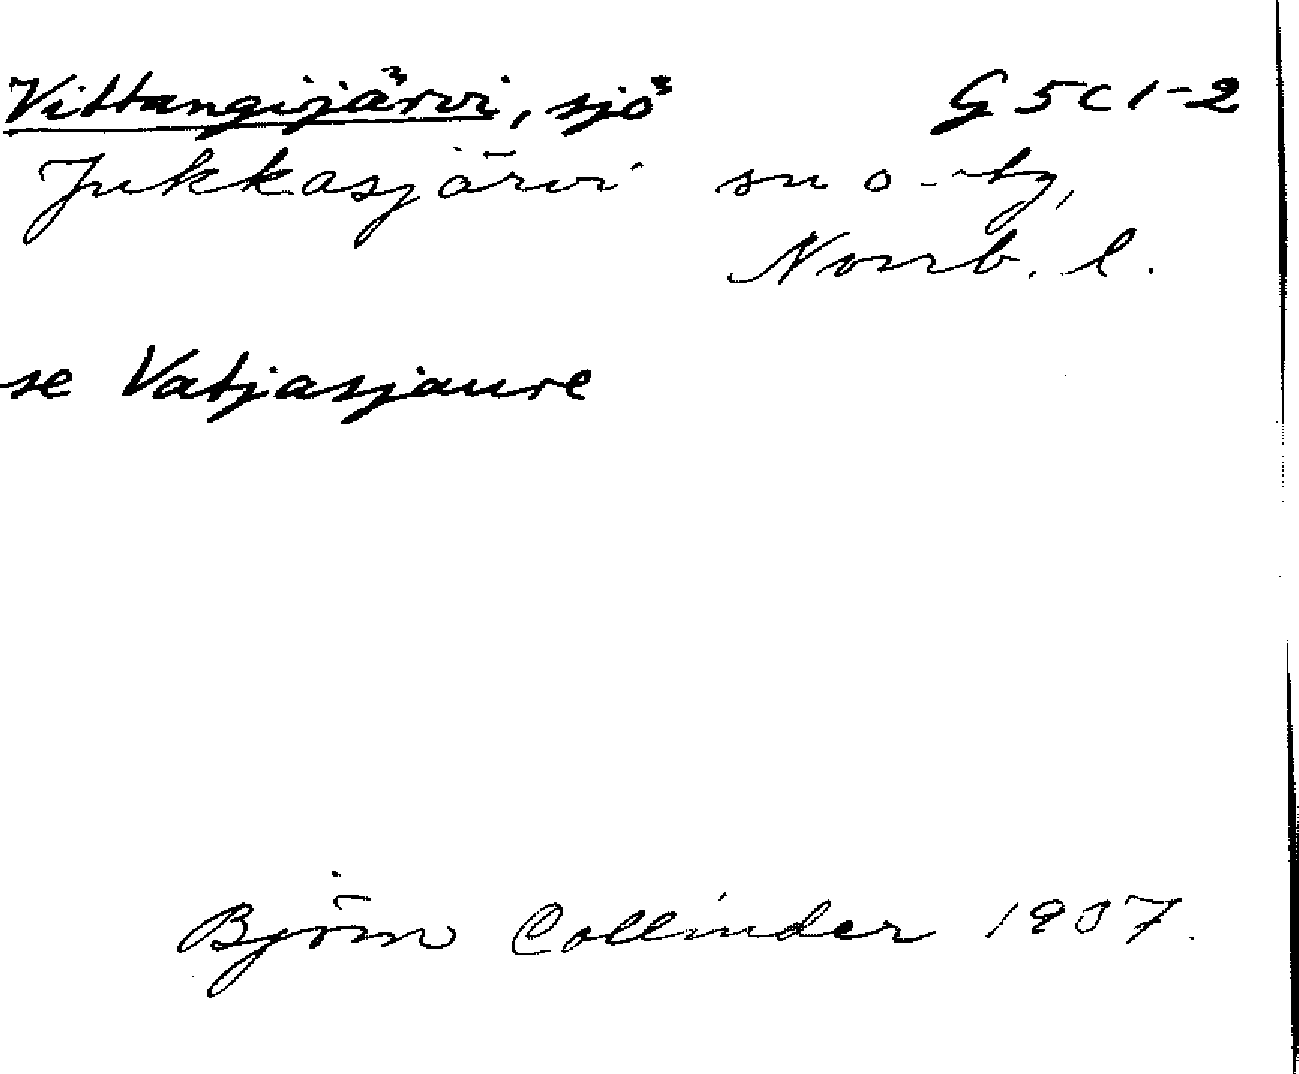 Vittangijärvi, sjö G 5 c 1-2
Jukkasjärvi sn o. tg,
Norrb. l.
se Vatjasjaure
Björn Collinder 1907.